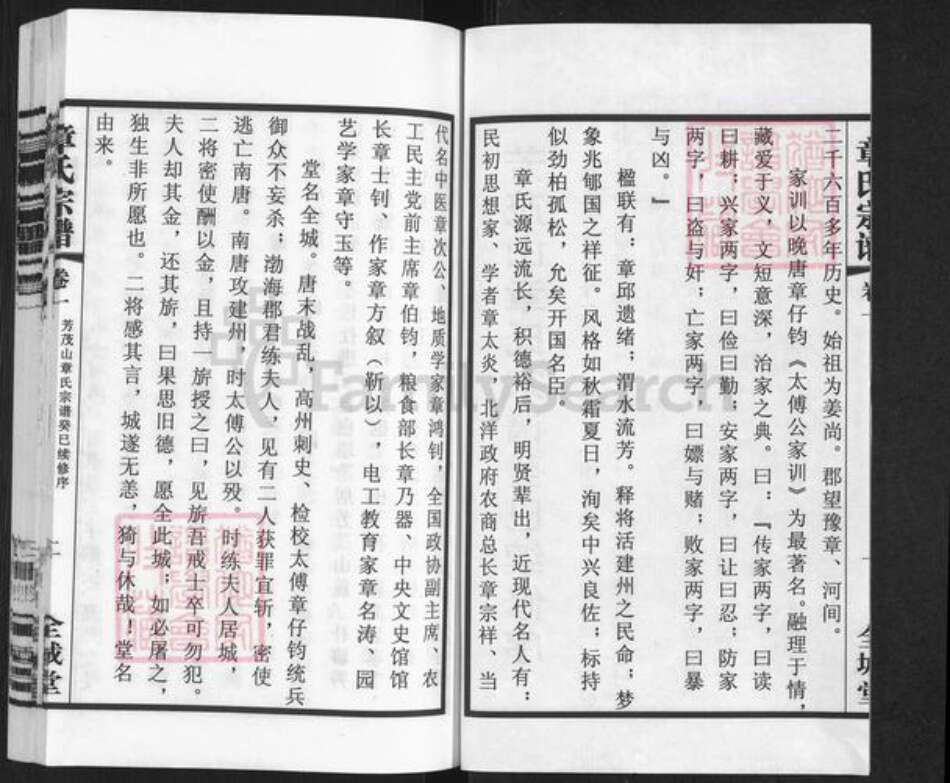 章氏宗谱
卷一
全城堂
二千六百多年历史。始祖为姜尚。郡望豫章、河间。
家训以晚唐章仔钧《太傅公家训》为最著名。融理于情，
藏爱于义，文短意深，治家之典。曰：『传家两字，曰读
曰耕；兴家两字，曰俭曰勤；安家两字，曰让曰忍；防家
两字，曰盗与奸；亡家两字，曰嫖与赌；败家两字，曰暴
与凶。』
楹联有：章邱遗绪；渭水流芳。释将活建州之民命；梦
象兆郇国之祥征。风格如秋霜夏日，洵矣中兴良佐；标持
似劲柏孤松，允矣开国名臣。
章氏源远流长，积德裕后，明贤辈出，近现代名人有：
民初思想家、学者章太炎，北洋政府农商总长章宗祥、当
代名中医章次公、地质学家章鸿钊，全国政协副主席、农
工民主党前主席章伯钧，粮食部长章乃器、中央文史馆馆
长章士钊、作家章方叙（靳以），电工教育家章名涛、园
艺学家章守玉等。
堂名全城。唐末战乱，高州刺史、检校太傅章仔钧统兵
御众不妄杀；渤海郡君练夫人，见有二人获罪宜斩，密使
逃亡南唐。南唐攻建州，时太傅公以殁。时练夫人居城，
二将密使酬以金，且持一旂授之曰，见旂吾戒士卒可勿犯。
夫人却其金，还其旂，曰果思旧德，愿全此城；如必屠之，
独生非所愿也。二将感其言，城遂无恙，猗与休哉！堂名
由来。
章氏宗谱
卷一
芳茂山章氏宗谱癸巳续修序
二
全城堂
FamilySearch